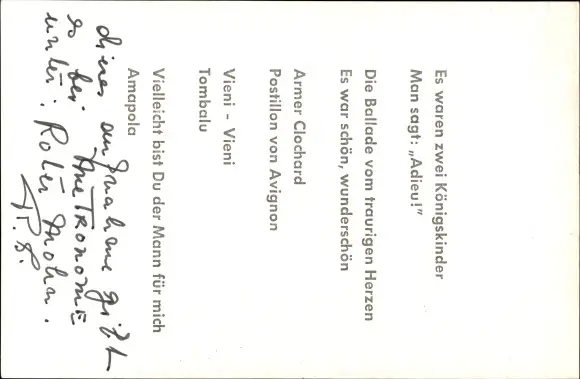 Es waren zwei Königskinder
Man sagt: „Adieu!"
Die Ballade vom traurigen Herzen
Es war schön, wunderschön
Armer Clochard
Postillon von Avignon
Vieni - Vieni
Tombalu
Vielleicht bist Du der Mann für mich
Amapola
dieses aufnahme gibt
es bei METRONOME
unter: Roter Mohn.